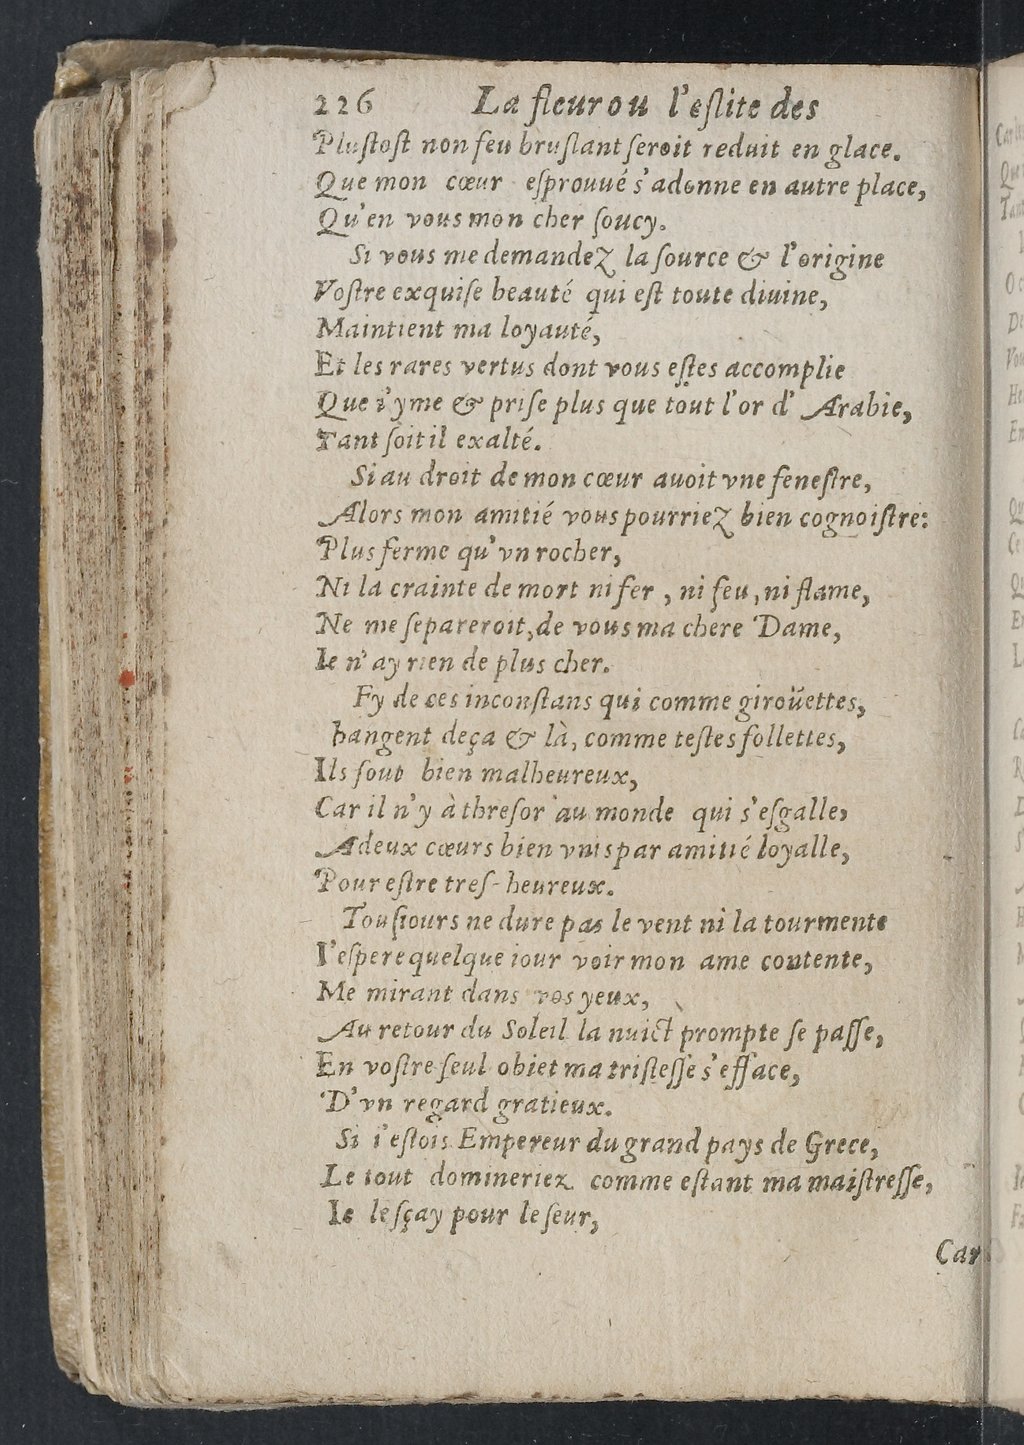 226 La fleur ou l'eſlite des
Pluſtoſt non feu bruſlant ſeroit reduit en glace.
Que mon cœur eſprouué s'adonne en autre place,
Qu'en vous mon cher ſoucy.
Si vous me demandez la ſource & l'origine
Voſtre exquiſe beauté qui eſt toute diuine,
Maintient ma loyauté,
Et les rares vertus dont vous eſtes accomplie
Que i'yme & priſe plus que tout l'or d' Arabie,
Tant ſoit il exalté.
Si au droit de mon cœur auoit vne feneſtre,
Alors mon amitié vous pourriez bien cognoiſtre:
Plus ferme qu'vn rocher,
Ni la crainte de mort ni fer , ni feu, ni flame,
Ne me ſepareroit, de vous ma chere Dame,
Ie n'ay rien de plus cher.
Fy de ces inconſtans qui comme giroüettes,
hangent deça & là, comme teſtes follettes,
Ils ſout bien malheureux,
Car il n'y à threſor au monde qui s'eſgalle,
A deux cœurs bien vnis par amitié loyalle,
Pour eſtre treſ-heureux.
Touſiours ne dure pas le vent ni la tourmente
I'eſpere quelque iour voir mon ame contente,
Me mirant dans vos yeux,
Au retour du Soleil la nuict prompte ſe paſſe,
En voſtre ſeul obiet ma triſteſſe s'efface,
D'vn regard gratieux.
Si i'eſtois Empereur du grand pays de Grece,
Le tout domineriez comme eſtant ma maiſtreſſe,
Ie le ſçay pour le ſeur,
Car